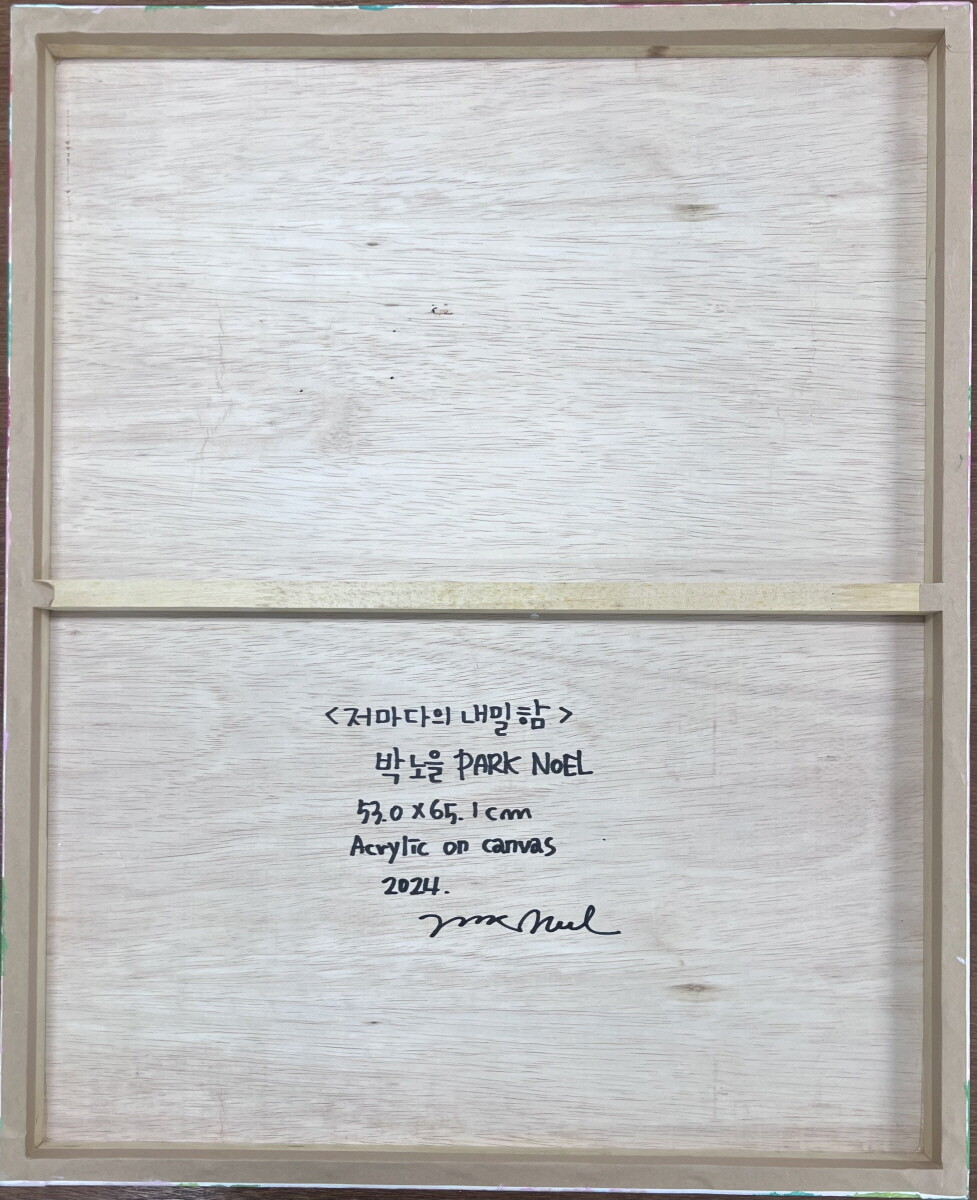 <저마다의 내밀함>
박노을 PARK NOEL
53.0 x 65.1cm
Acrylic on canvas
2024.